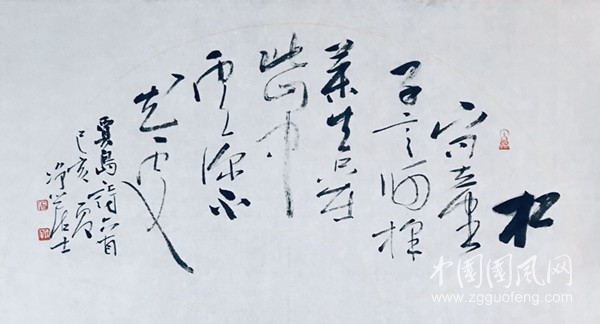 松
下问童
子言师採
药去只在
此山中
云深不
知处
賈島詩一首
己亥夏
居士
中国国风网
www.zgguofeng.com